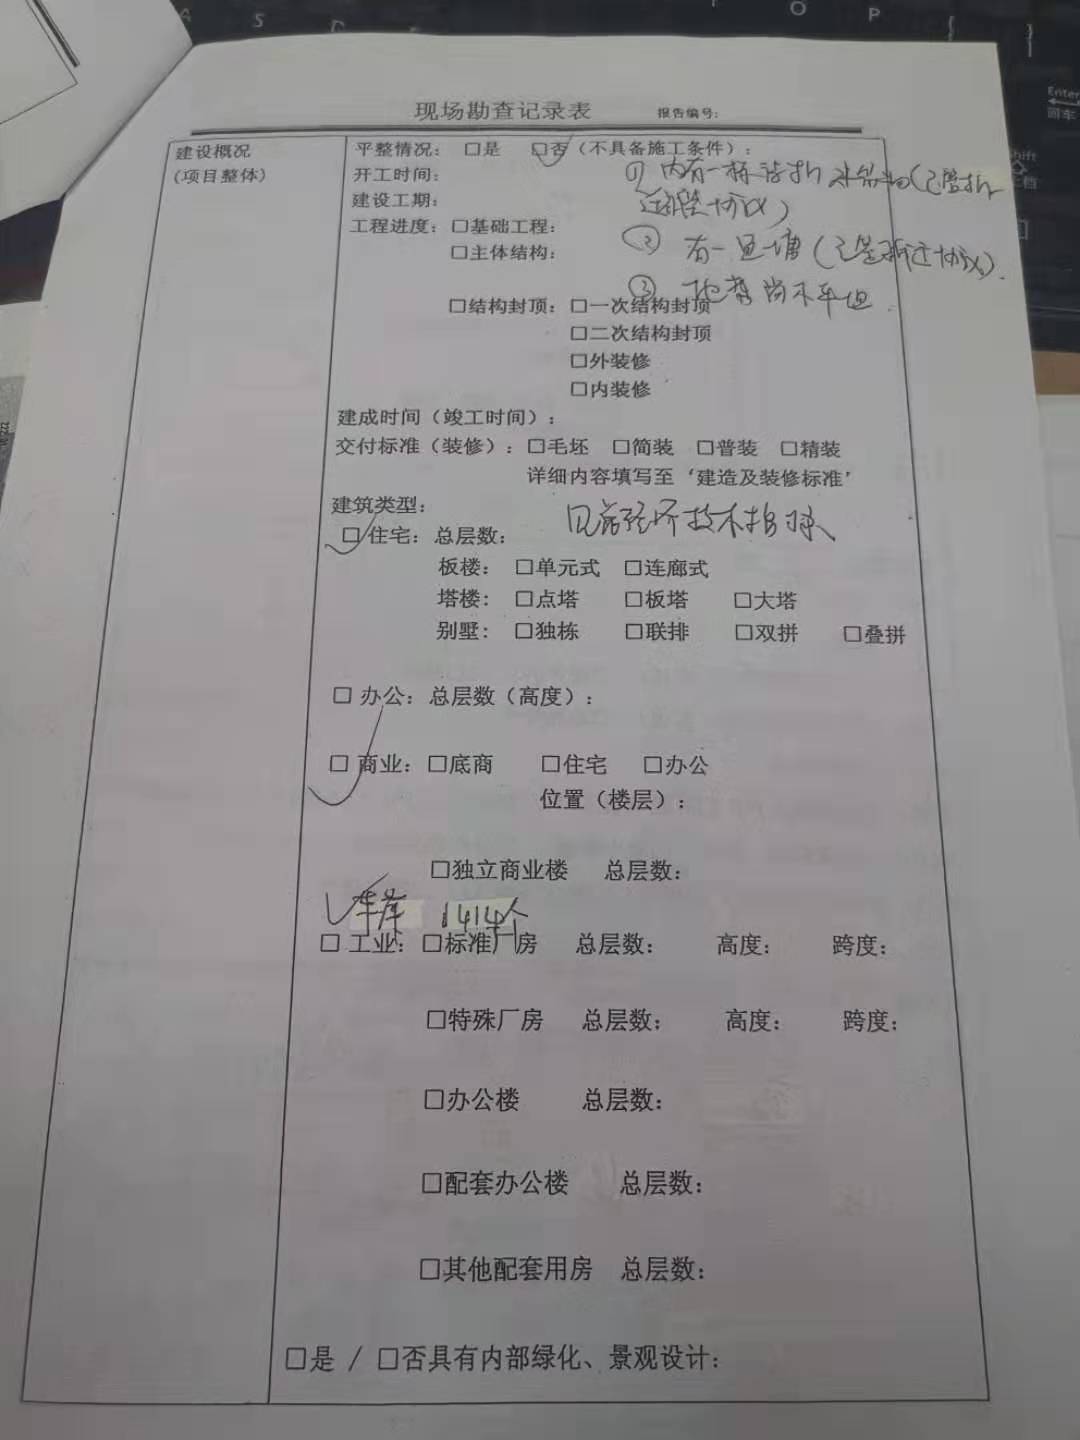 A S D
O P
{ }
Enter
回车
shift
现场勘查记录表 报告编号:
建设概况
(项目整体)
平整情况: □是 □否(不具备施工条件):
① 内有一栋待拆 建筑物(已签拆
开工时间:
迁 协议)
建设工期:
工程进度: □基础工程:
② 有一鱼塘(已签拆迁协议).
□主体结构:
③ 地势尚不平坦.
□结构封顶: □一次结构封顶
□二次结构封顶
□外装修
□内装修
建成时间(竣工时间):
交付标准(装修): □毛坯 □简装 □普装 □精装
详细内容填写至‘建造及装修标准’
建筑类型:
见 经济技术指标
□住宅: 总层数:
板楼: □单元式 □连廊式
塔楼: □点塔 □板塔 □大塔
别墅: □独栋 □联排 □双拼 □叠拼
□ 办公: 总层数(高度):
□ 商业: □底商 □住宅 □办公
位置(楼层):
□独立商业楼 总层数:
✓车库 1414个
□ 工业: □标准厂房 总层数: 高度: 跨度:
□特殊厂房 总层数: 高度: 跨度:
□办公楼 总层数:
□配套办公楼 总层数:
□其他配套用房 总层数:
□是 / □否具有内部绿化、景观设计: